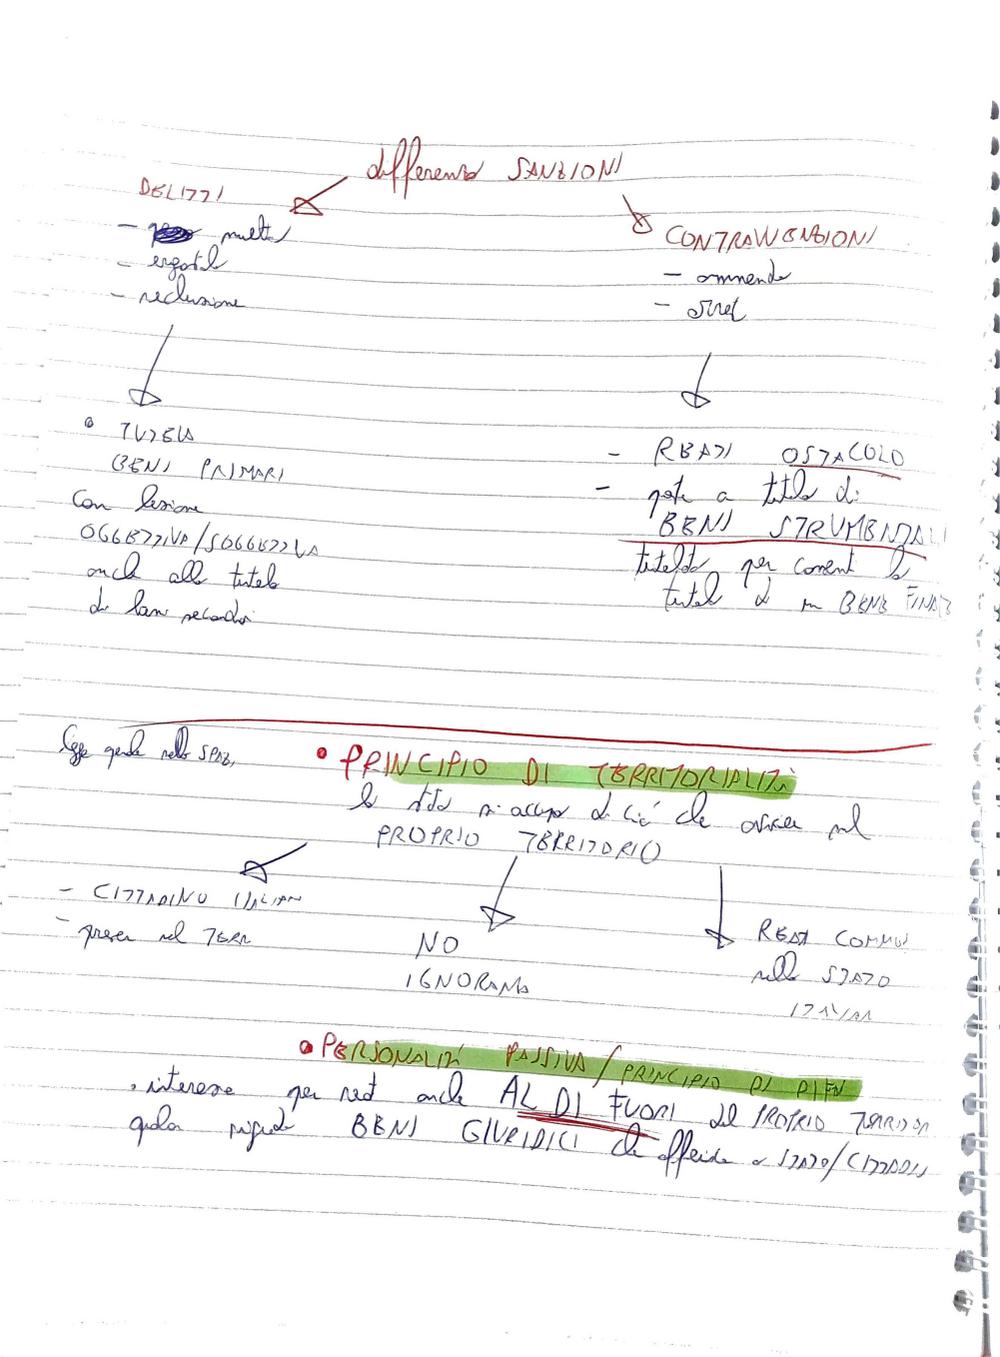 differenza SANZIONI
DELITTI
- multa
- ergastol
- reclusione
CONTRAVVENZIONI
- ammenda
- arrest
• TUTELA
BENI PRIMARI
Con lesione
OGGETTIVA/SOGGETTIVA
anche alla tutela
di beni secondari
- REATI OSTACOLO
- poste a titolo di
BENI STRUMENTALI
tutelato per consent la
tutela di un BENE FINALE
legge penale nello SPAZ.
• PRINCIPIO DI TERRITORIALITÀ
lo stato si occupa di ciò che avviene nel
PROPRIO TERRITORIO
- CITTADINO ITALIAN
- presen nel TERR
NO
IGNORANZA
REATI COMMESSI
nello STATO
ITALIAN
• PERSONALITÀ PASSIVA/PRINCIPIO DI DIFESA
. interesse per reat anche AL DI FUORI del PROPRIO TERRITOR
qualora riguard BENI GIURIDICI che offende a STATO/CITTADIN